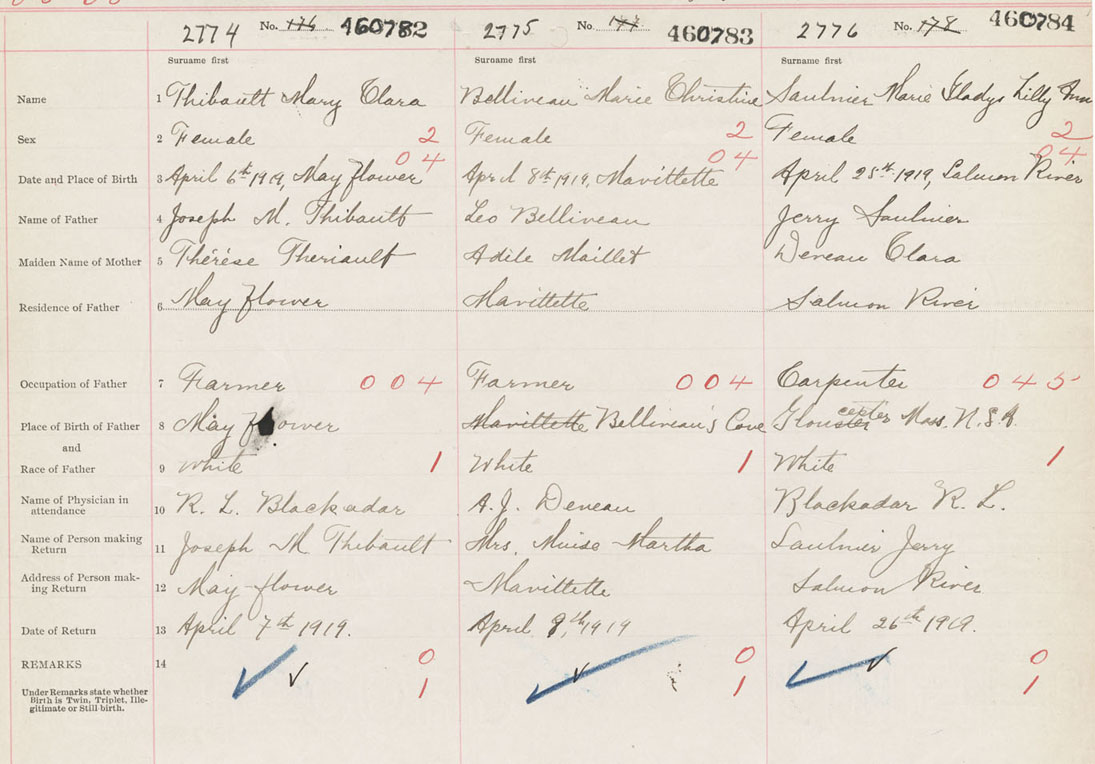 2774 No. 176 460782 2775 No. 177 460783 2776 No. 178 460784
Surname first Surname first Surname first
Name 1 Thibault Mary Clara Belliveau Marie Christine Saulnier Marie Gladys Lilly Ann
Sex 2 Female 2 Female 2 Female 2
04 04 04
Date and Place of Birth 3 April 6th 1919, Mayflower April 8th 1919, Mavillette April 25th 1919, Salmon River
Name of Father 4 Joseph M. Thibault Leo Belliveau Jerry Saulnier
Maiden Name of Mother 5 Thérèse Theriault Adele Maillet Deveau Clara
Residence of Father 6 May flower Mavillette Salmon River
Occupation of Father 7 Farmer 004 Farmer 004 Carpenter 045
Place of Birth of Father 8 May flower Mavillette Belliveau's Cove Mass.
and
Race of Father 9 White 1 White 1 White 1
Name of Physician in
attendance 10 R. L. Blackadar A. J. Deveau Blackadar R. L.
Name of Person making
Return 11 Joseph M. Thibault Mrs. Muise Martha Saulnier Jerry
Address of Person mak-
ing Return 12 May-flower Mavillette Salmon River
Date of Return 13 April 7th 1919. April 8,th 1919 April 26th 1919.
REMARKS 14 0 0 0
Under Remarks state whether 1 1 1
Birth is Twin, Triplet, Ille-
gitimate or Still-birth.